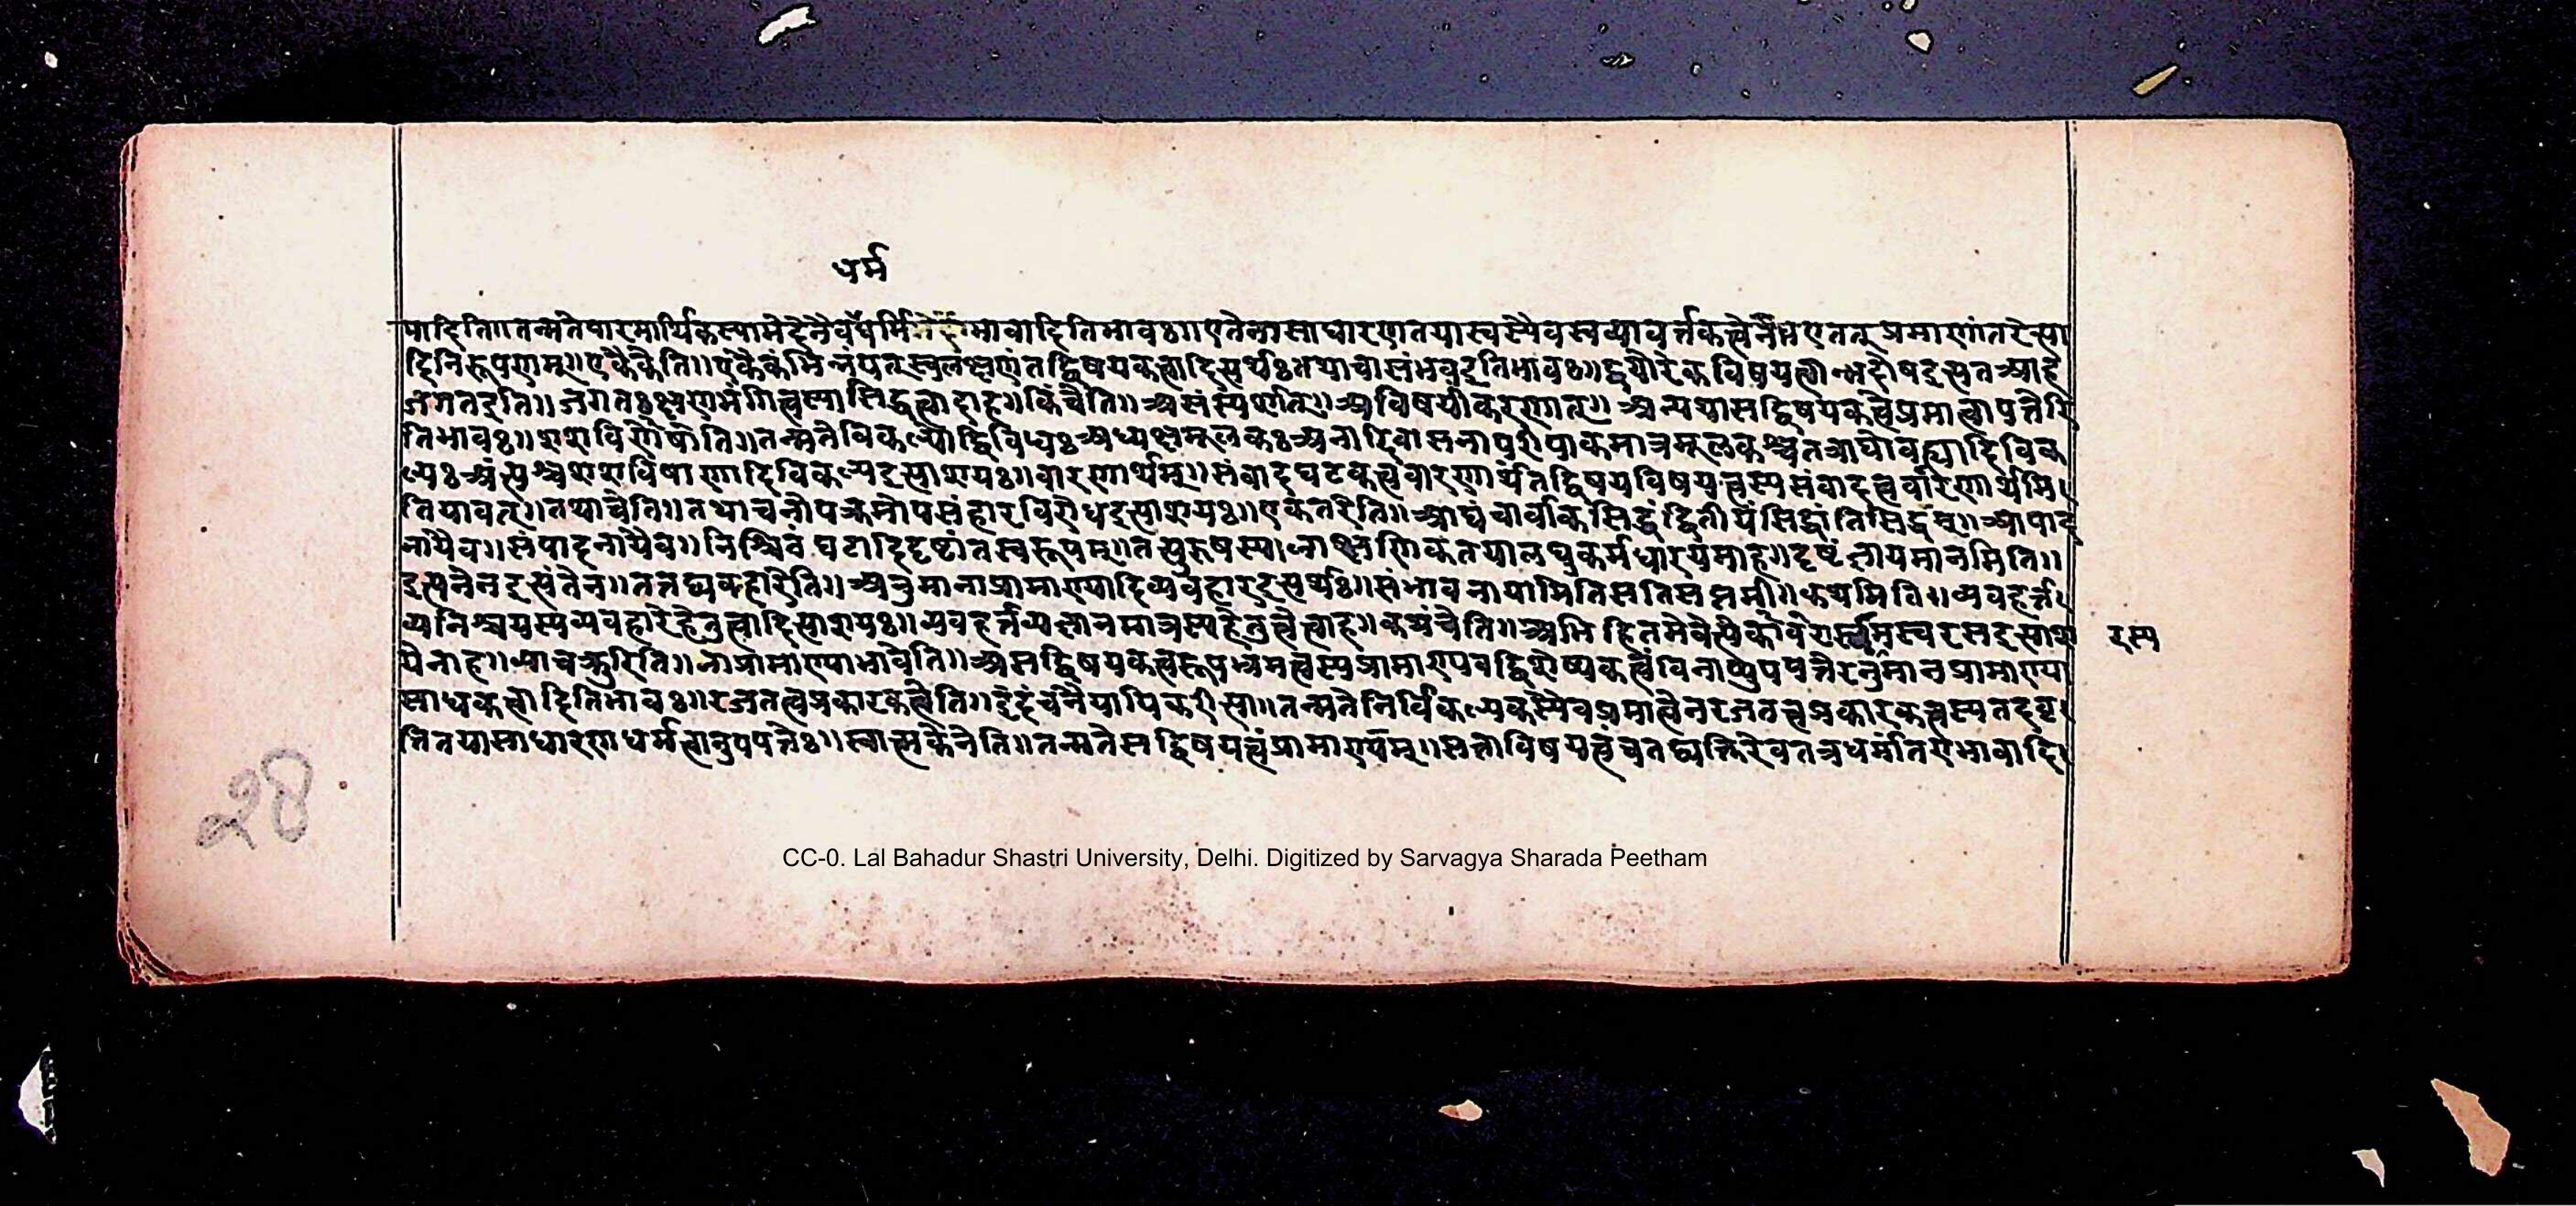 धर्म
पादिति॥तन्मतेपारमार्थिकस्याभेदेनैवधर्मिभावादितिभावः॥एतेनासाधारणतयास्वस्यैवस्वव्यावर्त्तकत्वेन एतत्तुप्रमाणांतरेत्या
दिनिरूपणाम्॥एकैकेति॥एकैकंभिन्नंयत्स्वलक्षणंतद्विषयकत्वादित्यर्थःतथाचासंभवइतिभावः॥द्वयोरेकविषयत्वान्नदोषइत्यतआह
जगतइति॥जगतःक्षणभंगित्वस्यासिद्धत्वादाह॥किंचेति॥असंस्पर्शात्॥अविषयीकरणात्॥अन्यथासद्विषयकत्वेप्रमात्वापत्तेरि
तिभावः॥शशविषाणेति॥तन्मतेविकल्पोद्विविधःअध्यक्षमूलकःअनादिवासनापरिपाकमात्रमूलकश्चतत्राद्योवह्न्यादिविक
ल्पःअंत्यश्चशशविषाणादिविकल्पइत्याशयः॥वारणार्थम्॥संवादघटकत्ववारणार्थंतद्विषयविषयत्वस्यसंवादत्ववारणार्थमि
तियावत्॥तथाचेति॥तथाचनोपक्रमोपसंहारविरोधइत्याशयः॥एकतरेति॥आद्यंचार्वाकसिद्धंद्वितीयंसिद्धांतिसिद्धम्॥आपाद
नायैव॥संपादनायैव॥निश्चिवं घटादिदृष्टांतस्वरूपम्॥तत्पुरुषस्य लाक्षणिकतयालघुकर्मधारयमाह॥दृष्टंज्ञायमानमिति॥
इत्यनेनइत्यंतेन॥तत्तद्व्यवहारेति॥अनुमानाप्रामाण्यादिव्यवहारइत्यर्थः॥संभावनायामितिसतिसप्तमी॥कथमिति॥व्यवहर्त्त
व्यनिश्चयस्यव्यवहारेहेतुत्वादित्याशयः॥व्यवहर्त्तव्यज्ञानमात्रस्यहेतुत्वेत्वाह॥कथंचेति॥अभिहितमेवेत्येकाव स्वरसइत्याश
रस्य
येनाह॥आचक्षुरिति॥नाप्रामाण्याभावेति॥असद्विषयकत्वरूपभ्रमत्वस्यप्रामाण्यवद्विशेष्यकत्वंविनाप्युपपत्तेरनुमानप्रामाण्या
साधकत्वादितिभावः॥रजतत्वप्रकारकत्वेति॥इदंचनैयायिकरीत्या॥तन्मतेनिर्विकल्पकस्यैवप्रमात्वेनरजतत्वप्रकारकत्वस्यतदवृ
त्तितयासाधारणाधर्मत्वानुपपत्तेः॥स्वात्मकेनेति॥तन्मतेसद्विषयत्वंप्रामाण्यम्॥सत्ताविषयत्वंचतद्व्यक्तिरेवतत्रधर्मातराभावादि
२४
CC-0. Lal Bahadur Shastri University, Delhi. Digitized by Sarvagya Sharada Peetham